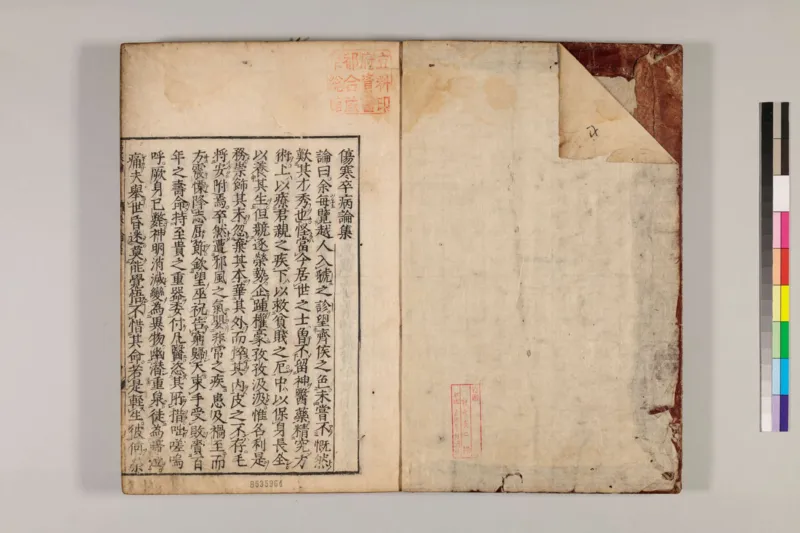 傷寒卒病論集
論曰余每覽越人入虢之診望齊侯之色未嘗不慨然
歎其才秀也怪當今居世之士曾不留神醫藥精究方
術上以療君親之疾下以救貧賤之厄中以保身長全
以養其生但競逐榮勢企踵權豪孜孜汲汲惟名利是
務崇飾其末忽棄其本華其外而悴其內皮之不存毛
將安附焉卒然遭邪風之氣嬰非常之疾患及禍至而
方震慄降志屈節欽望巫祝告窮歸天束手受敗賫百
年之壽命持至貴之重器委付凡醫恣其所措咄嗟嗚
呼厥身已斃神明消滅變為異物幽潛重泉徒為啼
痛夫舉世昏迷莫能覺悟不惜其命若是輕生彼何